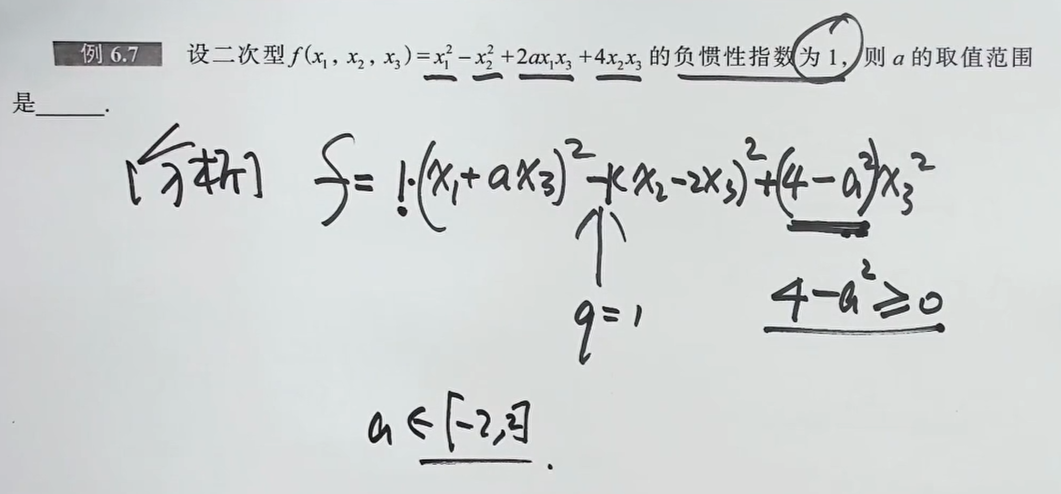 例 6.7 设二次型 f(x₁, x₂, x₃)=x₁²-x₂²+2ax₁x₃+4x₂x₃ 的负惯性指数为 1, 则 a 的取值范围
是______.
[分析] f= 1·(x₁+ax₃)²-1(x₂-2x₃)²+(4-a²)x₃²
q=1
4-a²≥0
a∈[-2,2].